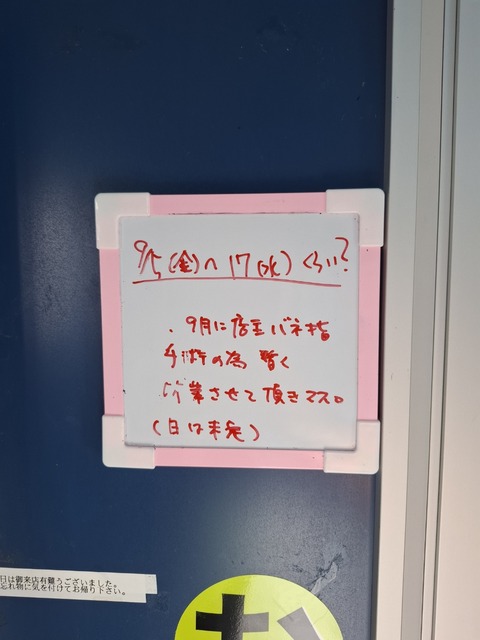 9/5(金)〜17(水)くらい?
. 9月に店主バネ指
手術の為 暫く
休業させて頂きマス。
(日は未定)
日は御来店有難うございました。
忘れ物に気を付けてお帰り下さい。